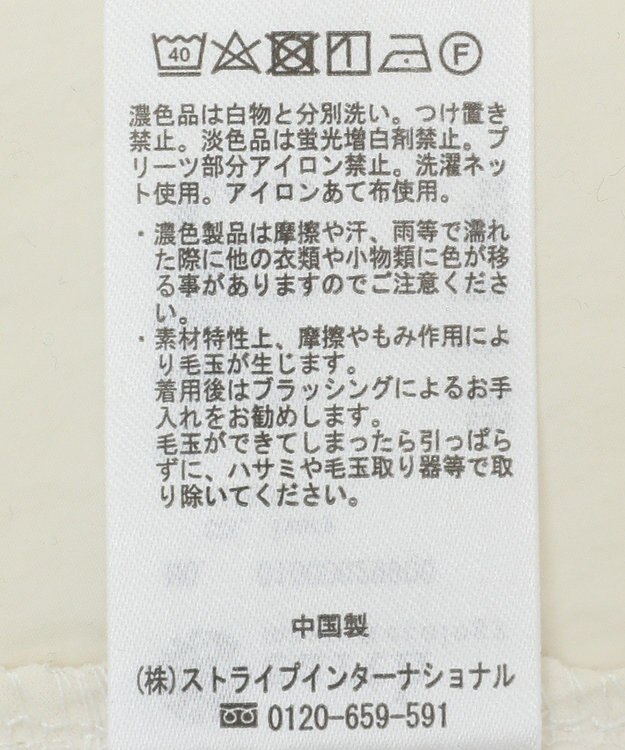 40 F
濃色品は白物と分別洗い。つけ置き
禁止。淡色品は蛍光増白剤禁止。プ
リーツ部分アイロン禁止。洗濯ネッ
ト使用。アイロンあて布使用。
・濃色製品は摩擦や汗、雨等で濡れ
た際に他の衣類や小物類に色が移
る事がありますのでご注意くださ
い。
・素材特性上、摩擦やもみ作用によ
り毛玉が生じます。
着用後はブラッシングによるお手
入れをお勧めします。
毛玉ができてしまったら引っぱら
ずに、ハサミや毛玉取り器等で取
り除いてください。
中国製
(株)ストライプインターナショナル
0120-659-591